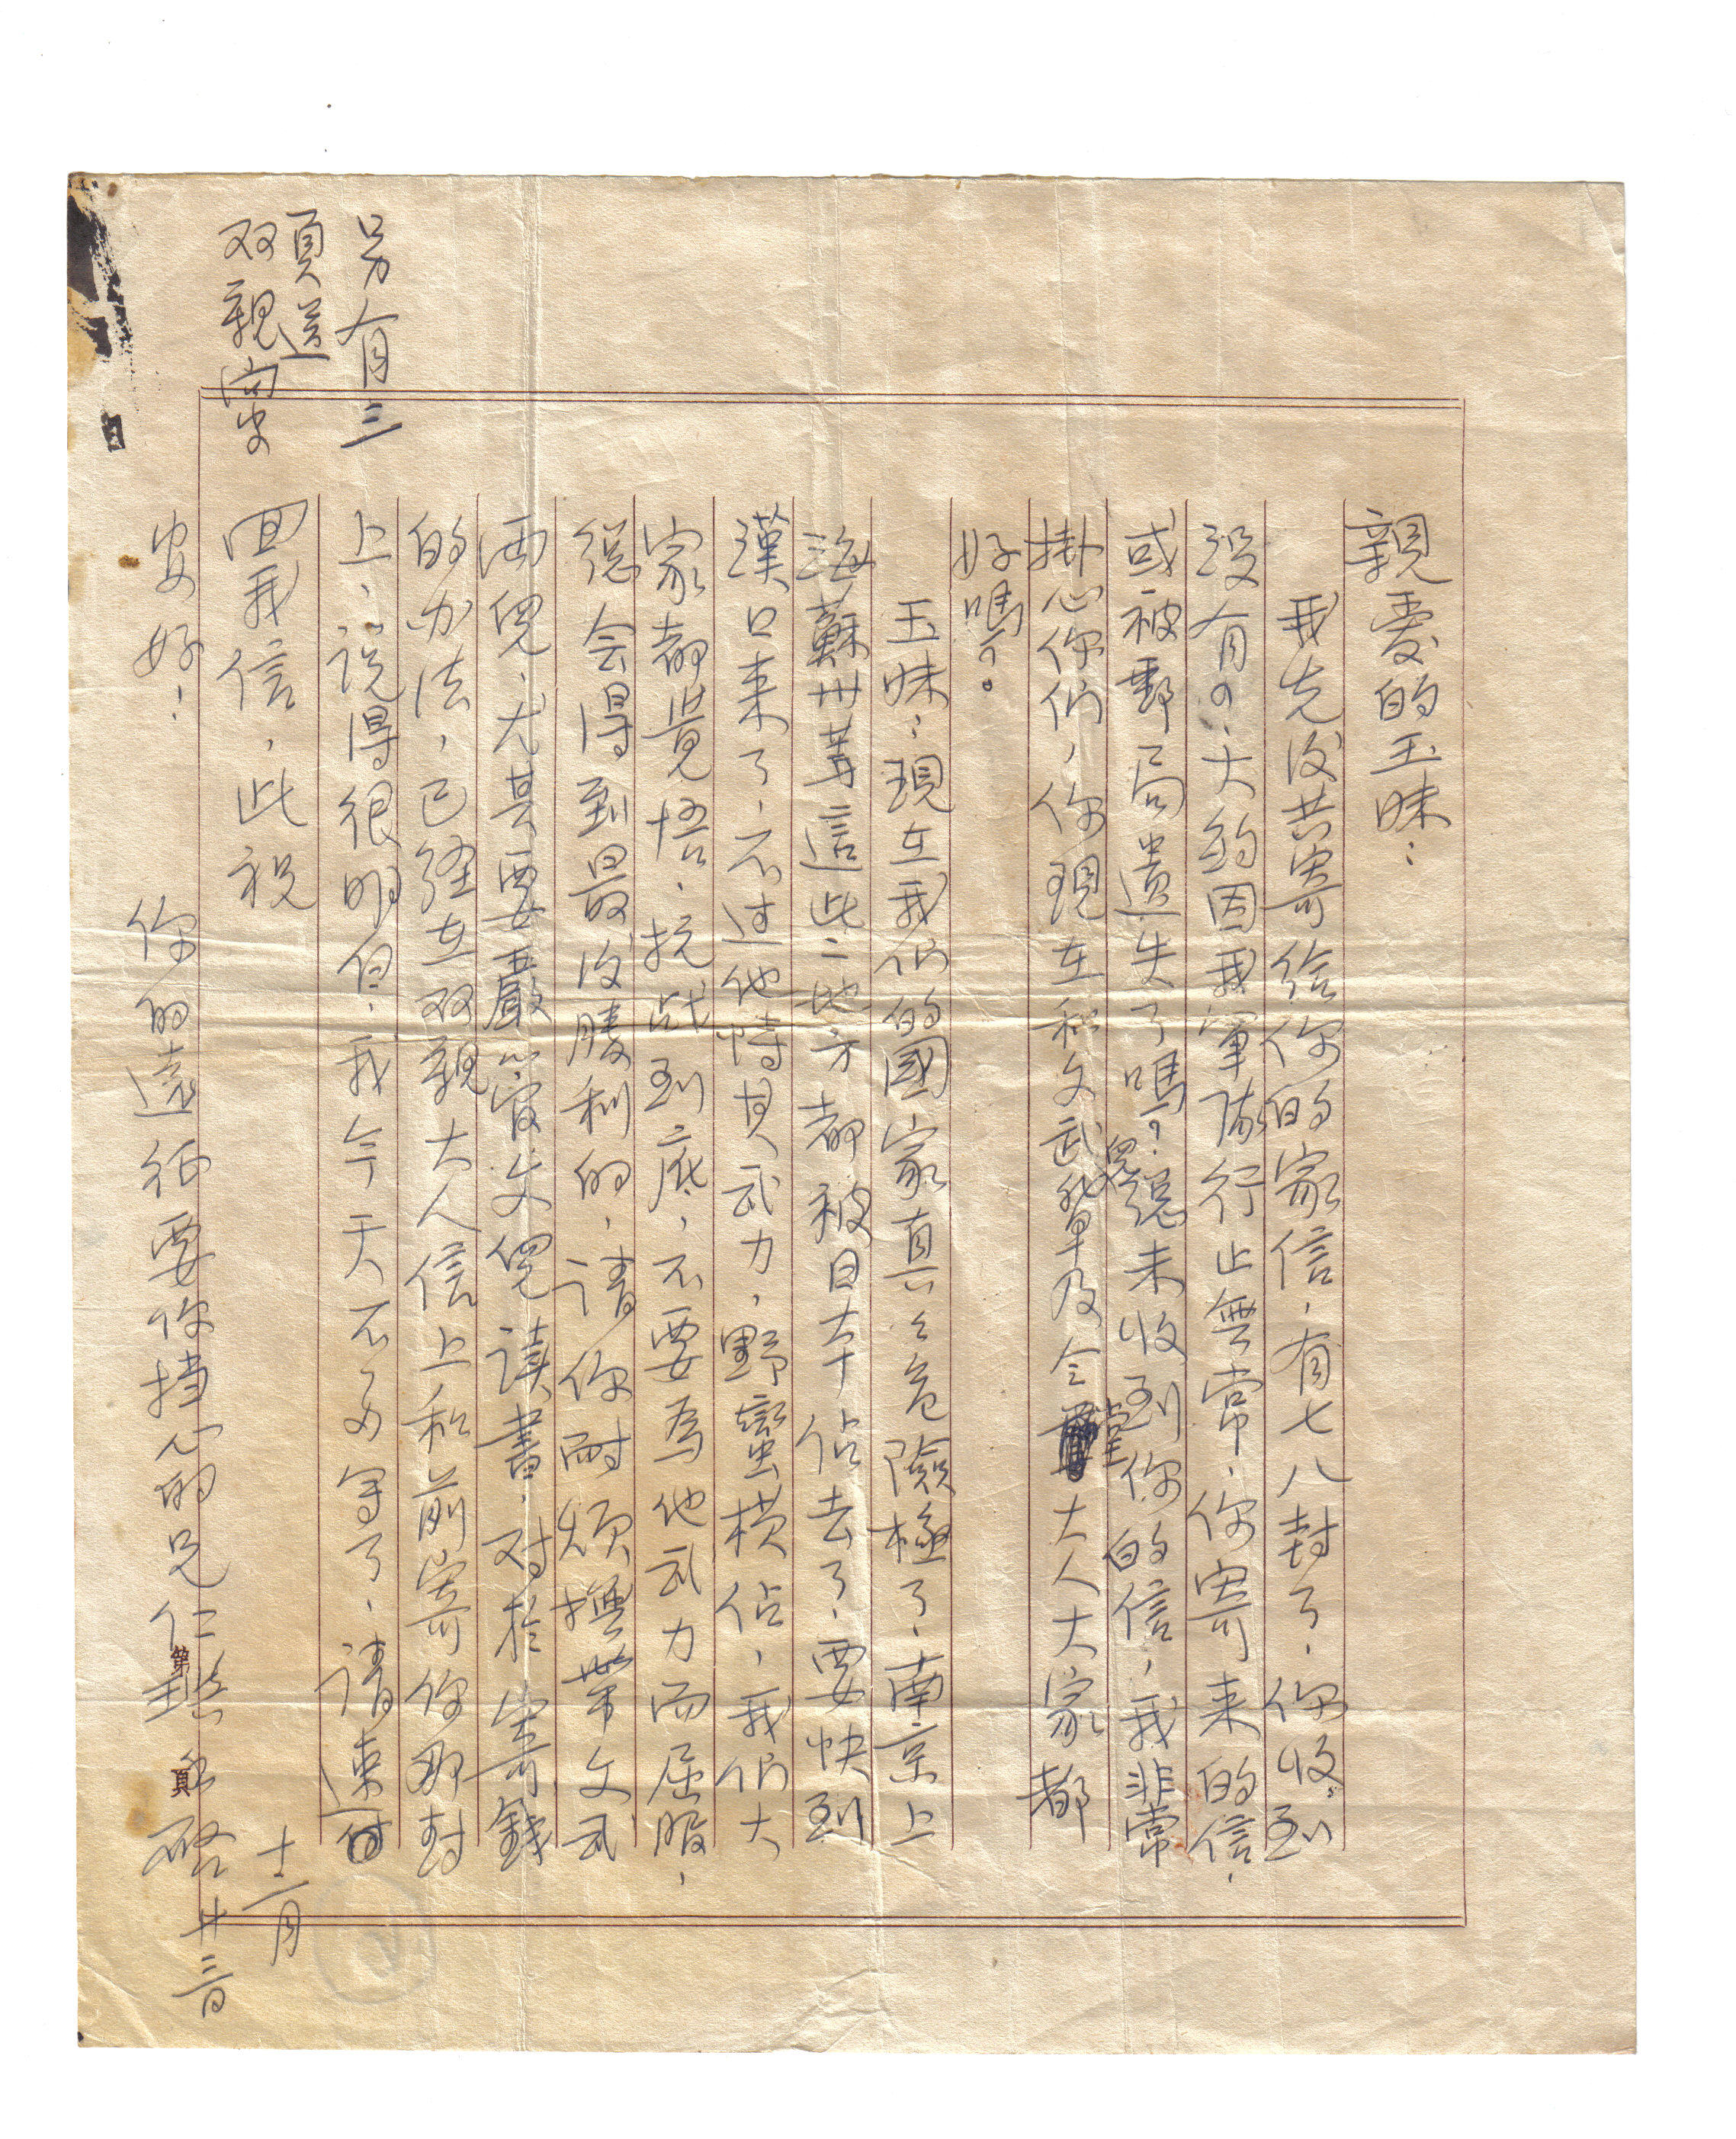 親愛的玉妹：
我先後共寄給你的家信，有七八封了，你收到
沒有？大約因我軍隊行止無常，你寄來的信，
或被郵局遺失了嗎？總未收到你的信，我非常
掛心你們，你現在和文武輩及令堂大人大家都
好嗎？。
玉妹：現在我们的國家真真危險極了，南京上
海蘇州等這些地方都被日本佔去了，要快到
漢口来了，不过他恃其武力，野蠻横佔，我们大
家都覺悟，抗战到底，不要為他武力而屈服，
總会得到最後勝利的，請你耐煩撫帶文武
两兒，尤其要嚴管文兒讀書，对於寄錢
的办法，已經在双親大人信上和前寄你那封
上，說得很明白，我今天不多写了，請速
回我信，此祝
安好！
你的遠征要你掛心的兄仁
啓
十二月
廿三日
另有三
頁送
双親
第 頁